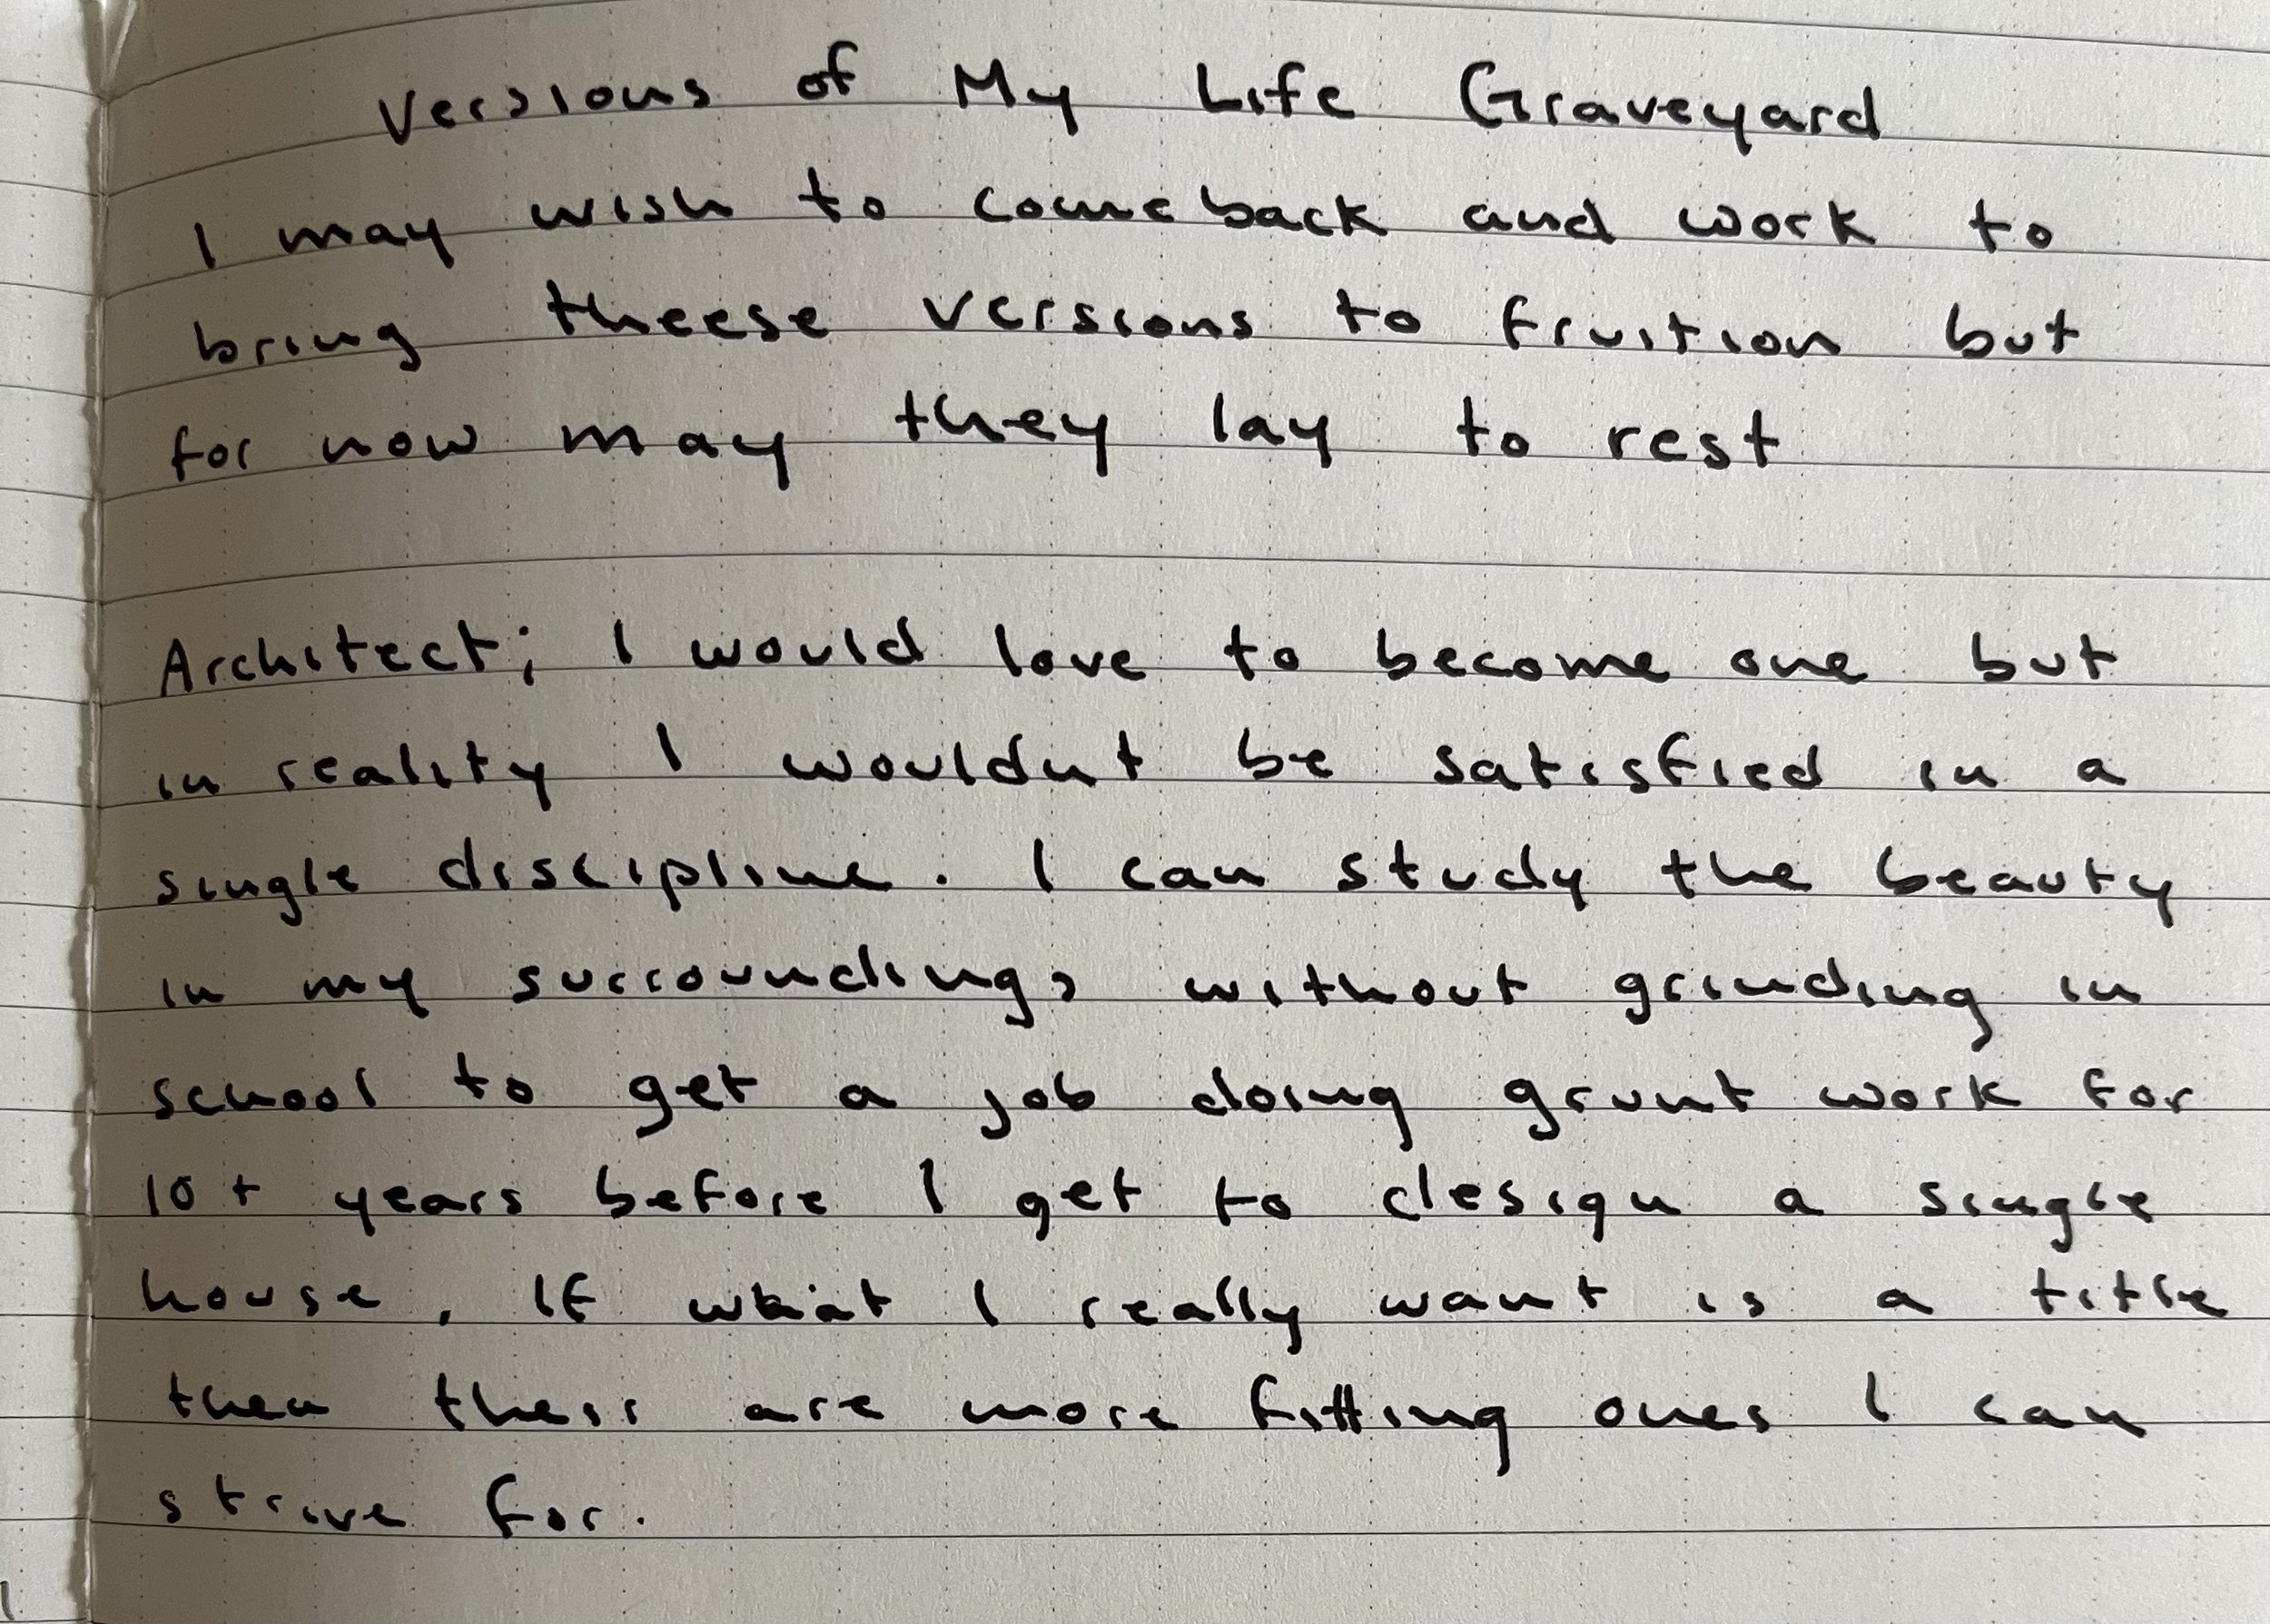 Versions of My Life Graveyard
I may wish to comeback and work to
bring theese versions to fruition but
for now may they lay to rest
Architect; I would love to become one but
in reality I wouldnt be satisfied in a
single discipline. I can study the beauty
in my surroundings without grinding in
school to get a job doing grunt work for
10+ years before I get to design a single
house. If what I really want is a title
then theirs are more fitting ones I can
strive for.